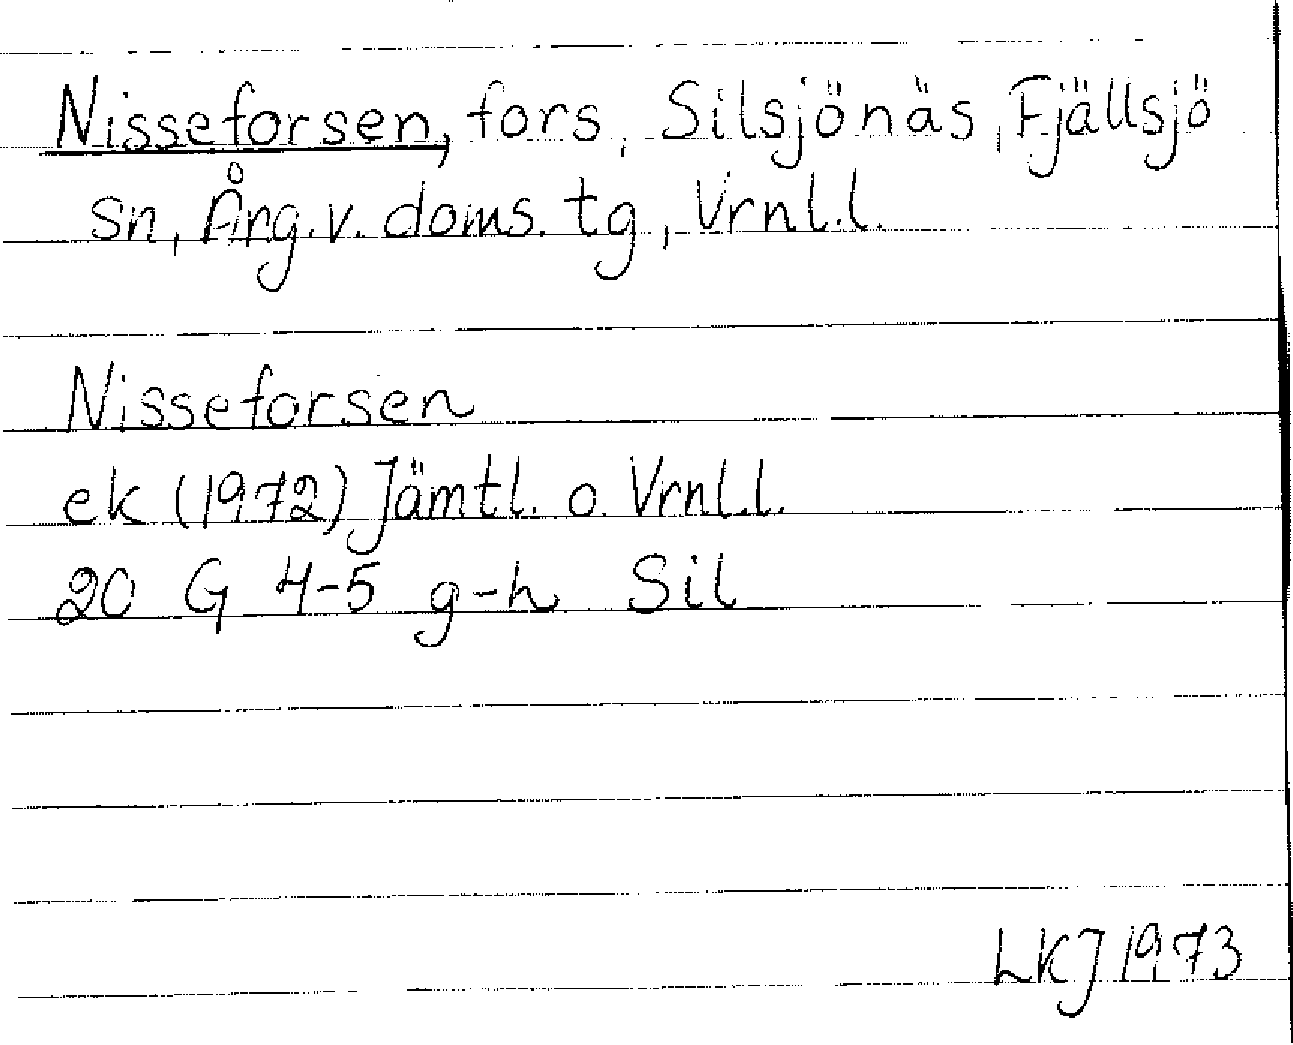 Nisseforsen, fors, Silsjönäs, Fjällsjö
sn, Ång.v. doms. tg, Vrnl.l.
Nisseforsen
ek (1972) Jämtl. o. Vrnl.l.
20 G 4-5 g-h Sil
LKJ 1973